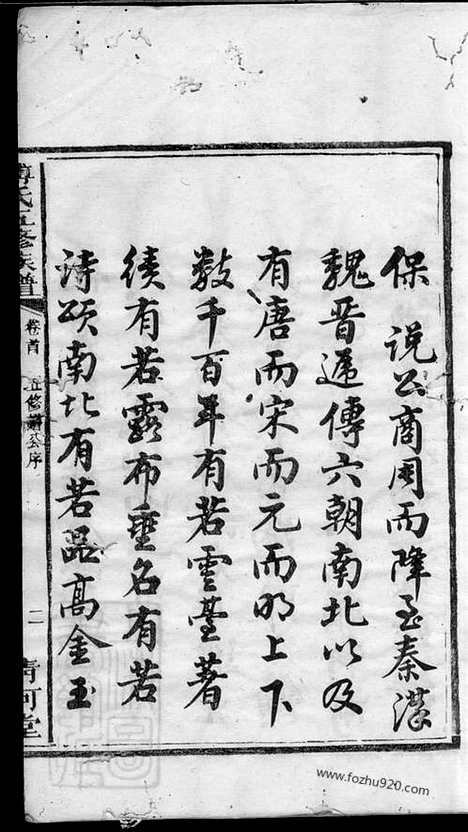 保說公商周而降至秦漢
魏晉遞傳六朝南北以及
有唐而宋而元而明上下
數千百年有若雲臺著
績有若露布垂名有若
詩頌南北有若品高金玉
傅氏五修族譜
卷首
五修譜公序
二
清河堂
www.fozhu920.com